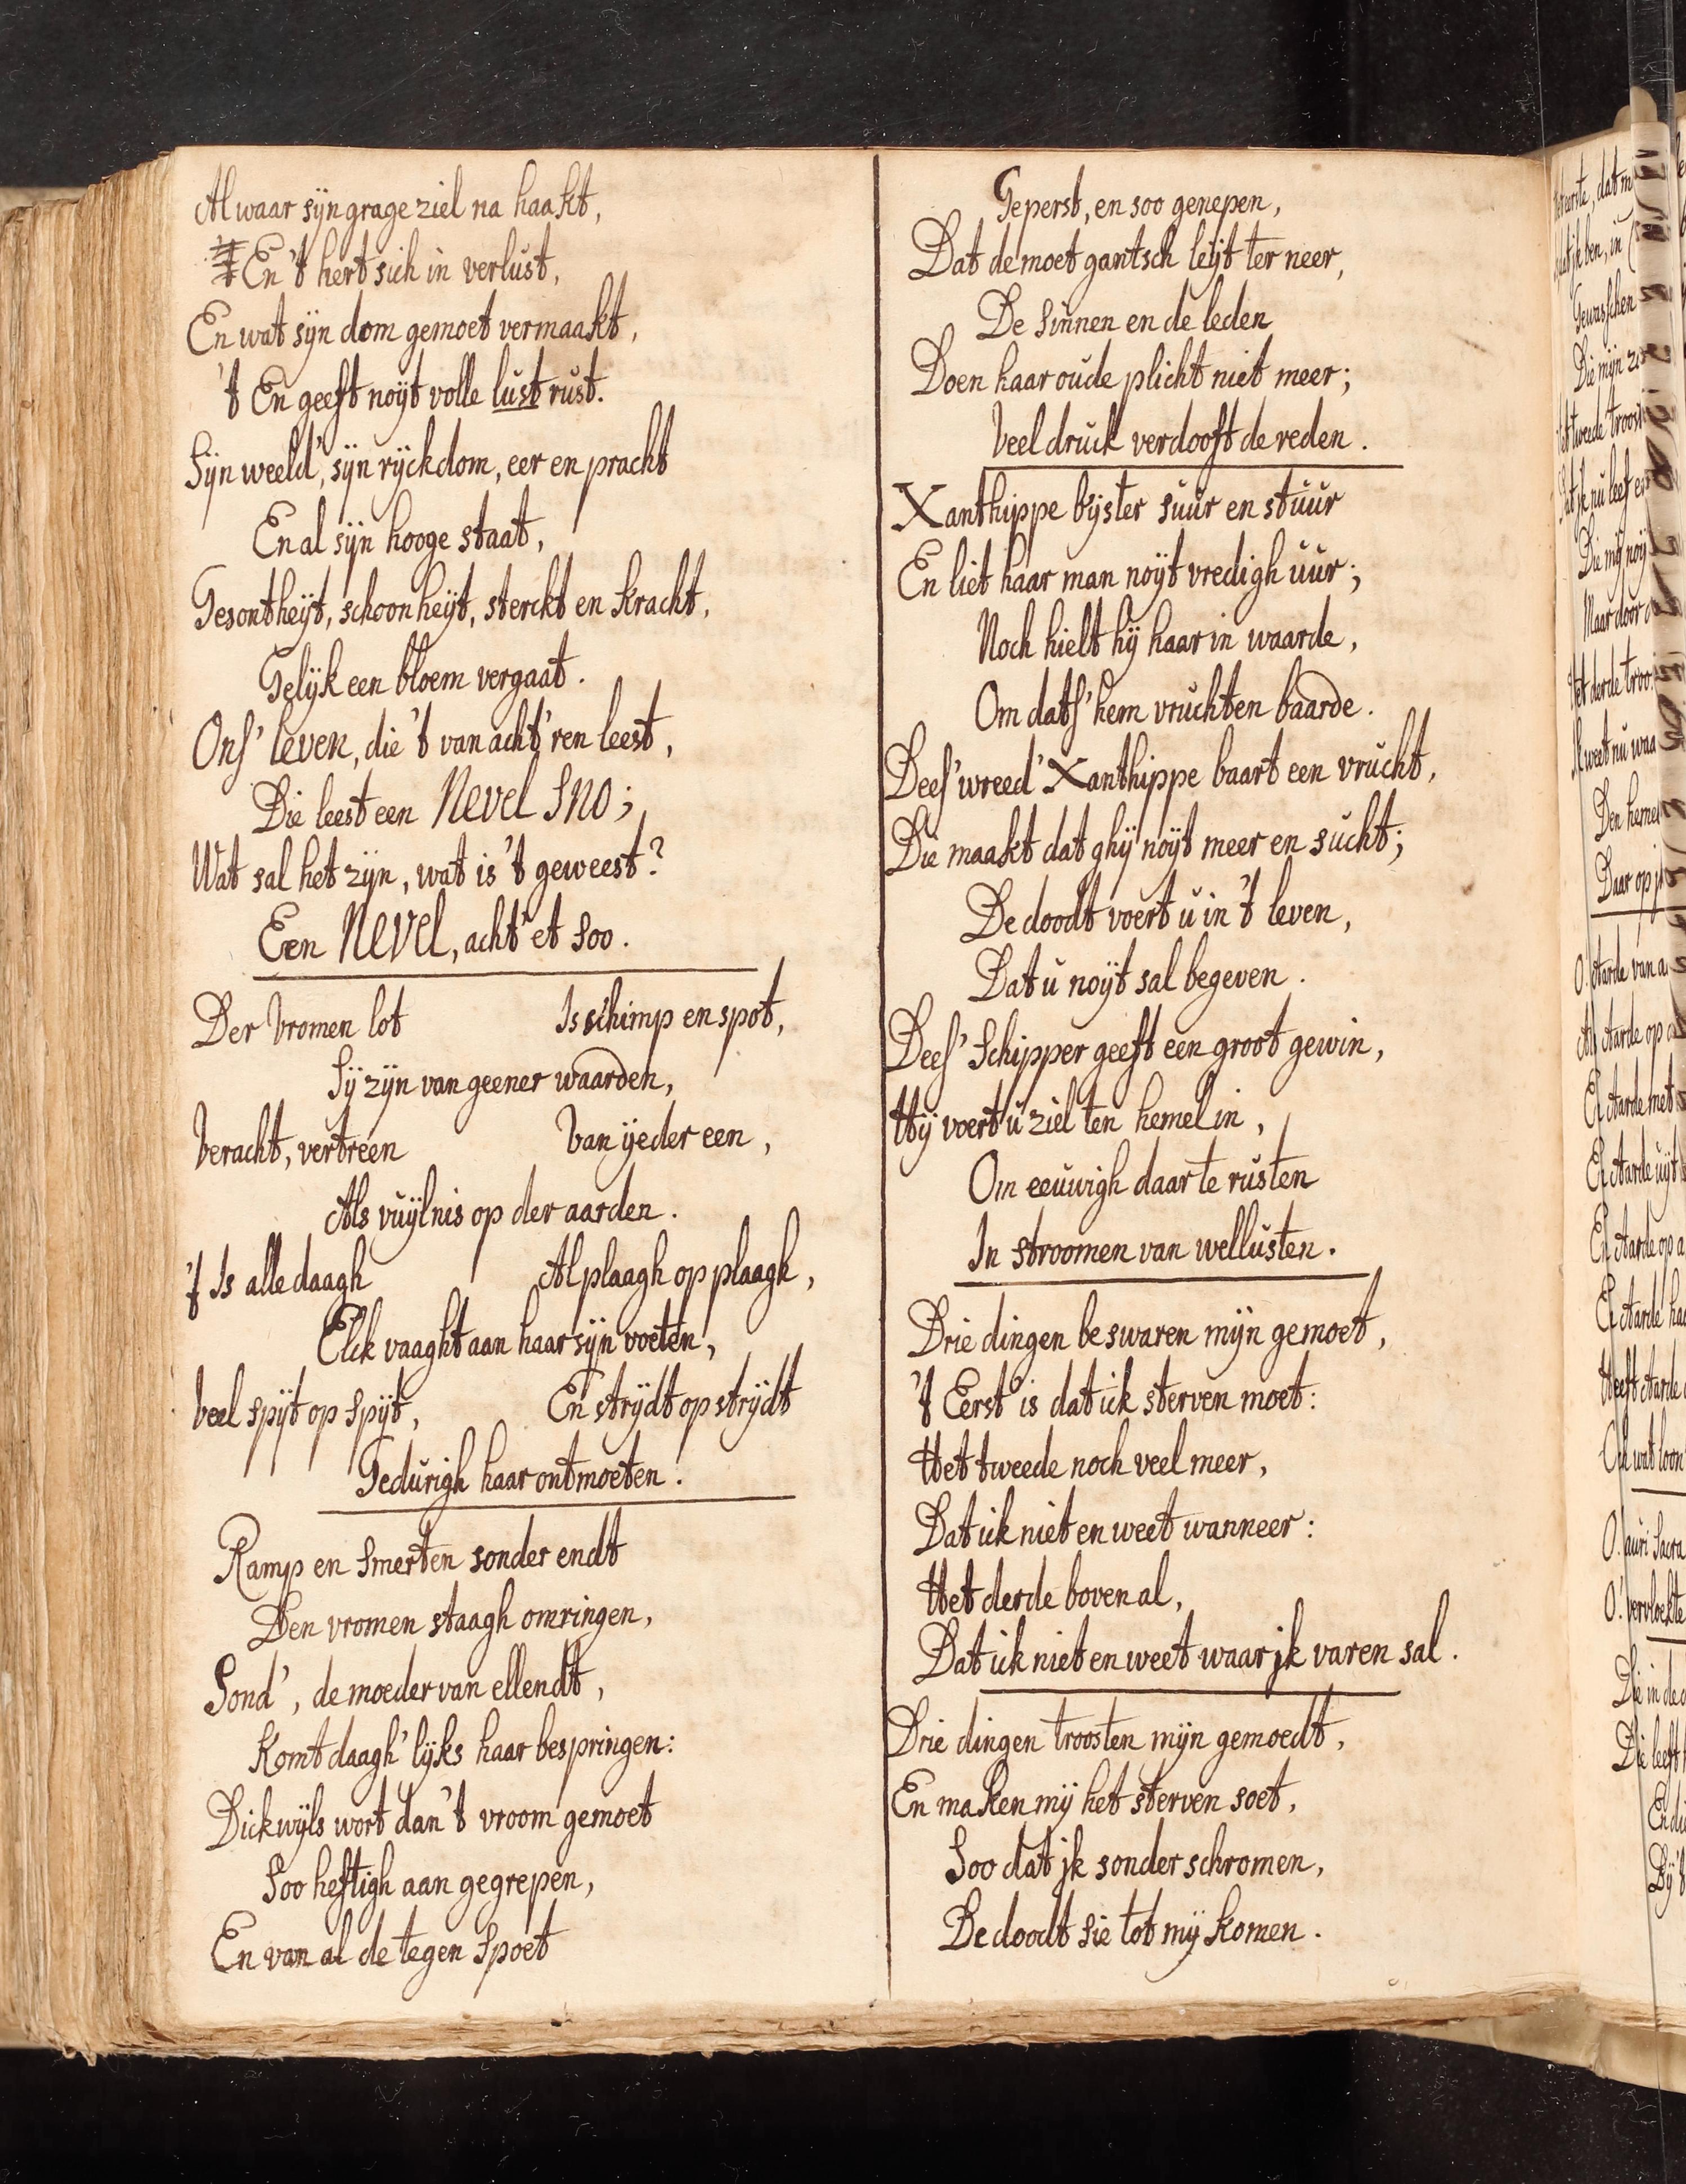 Al waar sÿn grage ziel na haakt,
En 't hert sich in verlust,
En wat sÿn dom gemoet vermaakt,
't En geeft noÿt volle lust rust.
Sÿn weeld', sÿn rÿckdom, eer en pracht
En al sÿn hooge staat,
Gesontheÿt, schoonheÿt, sterckt en kracht,
Gelÿk een bloem vergaat.
Ons' leven, die 't van acht'ren leest,
Die leest een Nevel sno;
Wat sal het zÿn, wat is 't geweest?
Een Nevel, acht' et soo.
Der vromen lot Is schimp en spot,
Sÿ zÿn van geener waarden,
Veracht, vertreen Van ÿeder een,
Als vuÿlnis op der aarden.
't Is alle daagh Al plaagh op plaagh,
Elck vaaght aan haar sÿn voeten,
Veel spÿt op spÿt, En strÿdt op strÿdt
Gedurigh haar ontmoeten.
Ramp en smerten sonder endt
Den vromen staagh omringen,
Sond', de moeder van ellendt,
Komt daagh'lÿks haar bespringen:
Dickwÿls wort dan 't vroom gemoet
Soo heftigh aan gegrepen,
En van al de tegen spoet
Geperst, en soo genepen,
Dat de moet gantsch leÿt ter neer,
De sinnen en de leden
Doen haar oude plicht niet meer;
Veel druck verdooft de reden.
Xanthippe bÿster suur en stuur
En liet haar man noÿt vredigh uur;
Noch hielt hÿ haar in waarde,
Om dats' hem vruchten baarde.
Dees' wreed' Xanthippe baart een vrucht,
Die maakt dat ghÿ noÿt meer en sucht;
De doodt voert u in 't leven,
Dat u noÿt sal begeven.
Dees' Schipper geeft een groot gewin,
Hÿ voert u ziel ten hemel in,
Om eeuwigh daar te rusten
In stroomen van wellusten.
Drie dingen beswaren mÿn gemoet,
't Eerst' is dat ick sterven moet:
Het tweede noch veel meer,
Dat ick niet en weet wanneer:
Het derde boven al,
Dat ick niet en weet waar jk varen sal.
Drie dingen troosten mÿn gemoedt,
En maken mÿ het sterven soet,
Soo dat jk sonder schromen,
De doodt sie tot mÿ komen.